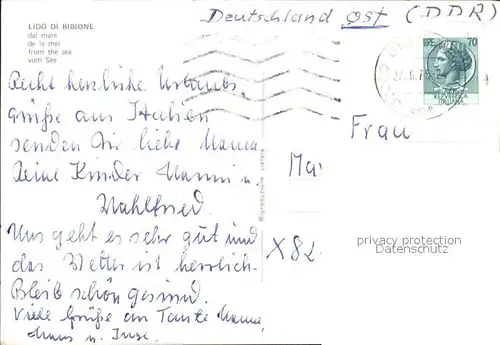 Deutschland Ost (DDR)
LIDO DI BIBIONE
dal mare
de la mer
from the sea
vom See
LIRE 70
REPVBBLICA
ITALIANA
Recht herzliche Urlaubs-
grüße aus Italien
senden Dir liebe Mama
Deine Kinder Manni u.
Wahlfried.
Uns geht es sehr gut und
das Wetter ist herrlich.
Bleib schön gesund.
Viele Grüße an Tante
u.
Frau
Ma
X82
Riproduzione vietata
privacy protection
Datenschutz